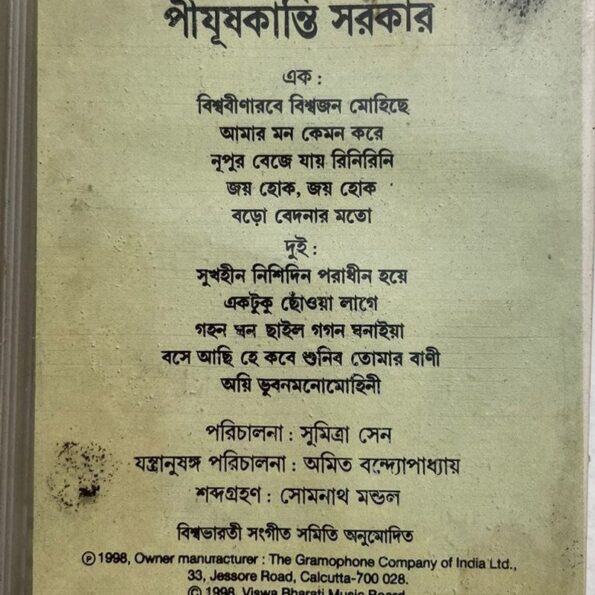 পীযূষকান্তি সরকার
এক :
বিশ্ববীণারবে বিশ্বজন মোহিছে
আমার মন কেমন করে
নূপুর বেজে যায় রিনিরিনি
জয় হোক, জয় হোক
বড়ো বেদনার মতো
দুই :
সুখহীন নিশিদিন পরাধীন হয়ে
একটুকু ছোঁওয়া লাগে
গহন ঘন ছাইল গগন ঘনাইয়া
বসে আছি হে কবে শুনিব তোমার বাণী
অয়ি ভুবনমনোমোহিনী
পরিচালনা : সুমিত্রা সেন
যন্ত্রানুষঙ্গ পরিচালনা : অমিত বন্দ্যোপাধ্যায়
শব্দগ্রহণ : সোমনাথ মন্ডল
বিশ্বভারতী সংগীত সমিতি অনুমোদিত
Ⓟ 1998, Owner manufacturer : The Gramophone Company of India Ltd.,
33, Jessore Road, Calcutta-700 028.
© 1998, Viswa Bharati Music Board